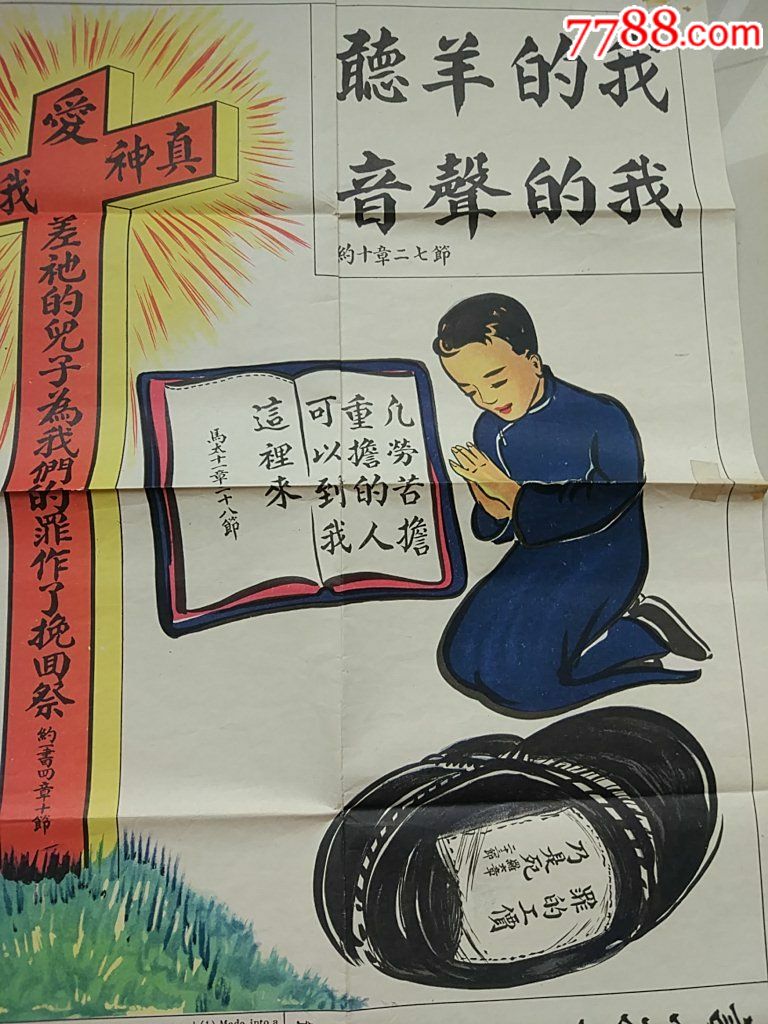 7788.com
我的羊聽
我的聲音
約十章二七節
真神愛我
差祂的兒子為我們的罪作了挽回祭
約一書四章十節
凡勞苦擔
重擔的人
可以到我
這裡來
馬太十一章二十八節
罪的工價
乃是死
羅六章
二十三節
(1) Made into a